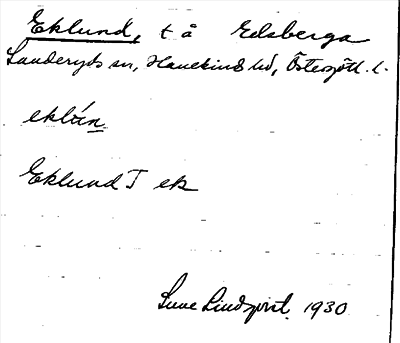 Eklund, t å Edsberga
Landeryds sn, Hanekinds hd, Östergötl. l.
eklún
Eklund T ek
Sune Lindqvist. 1930